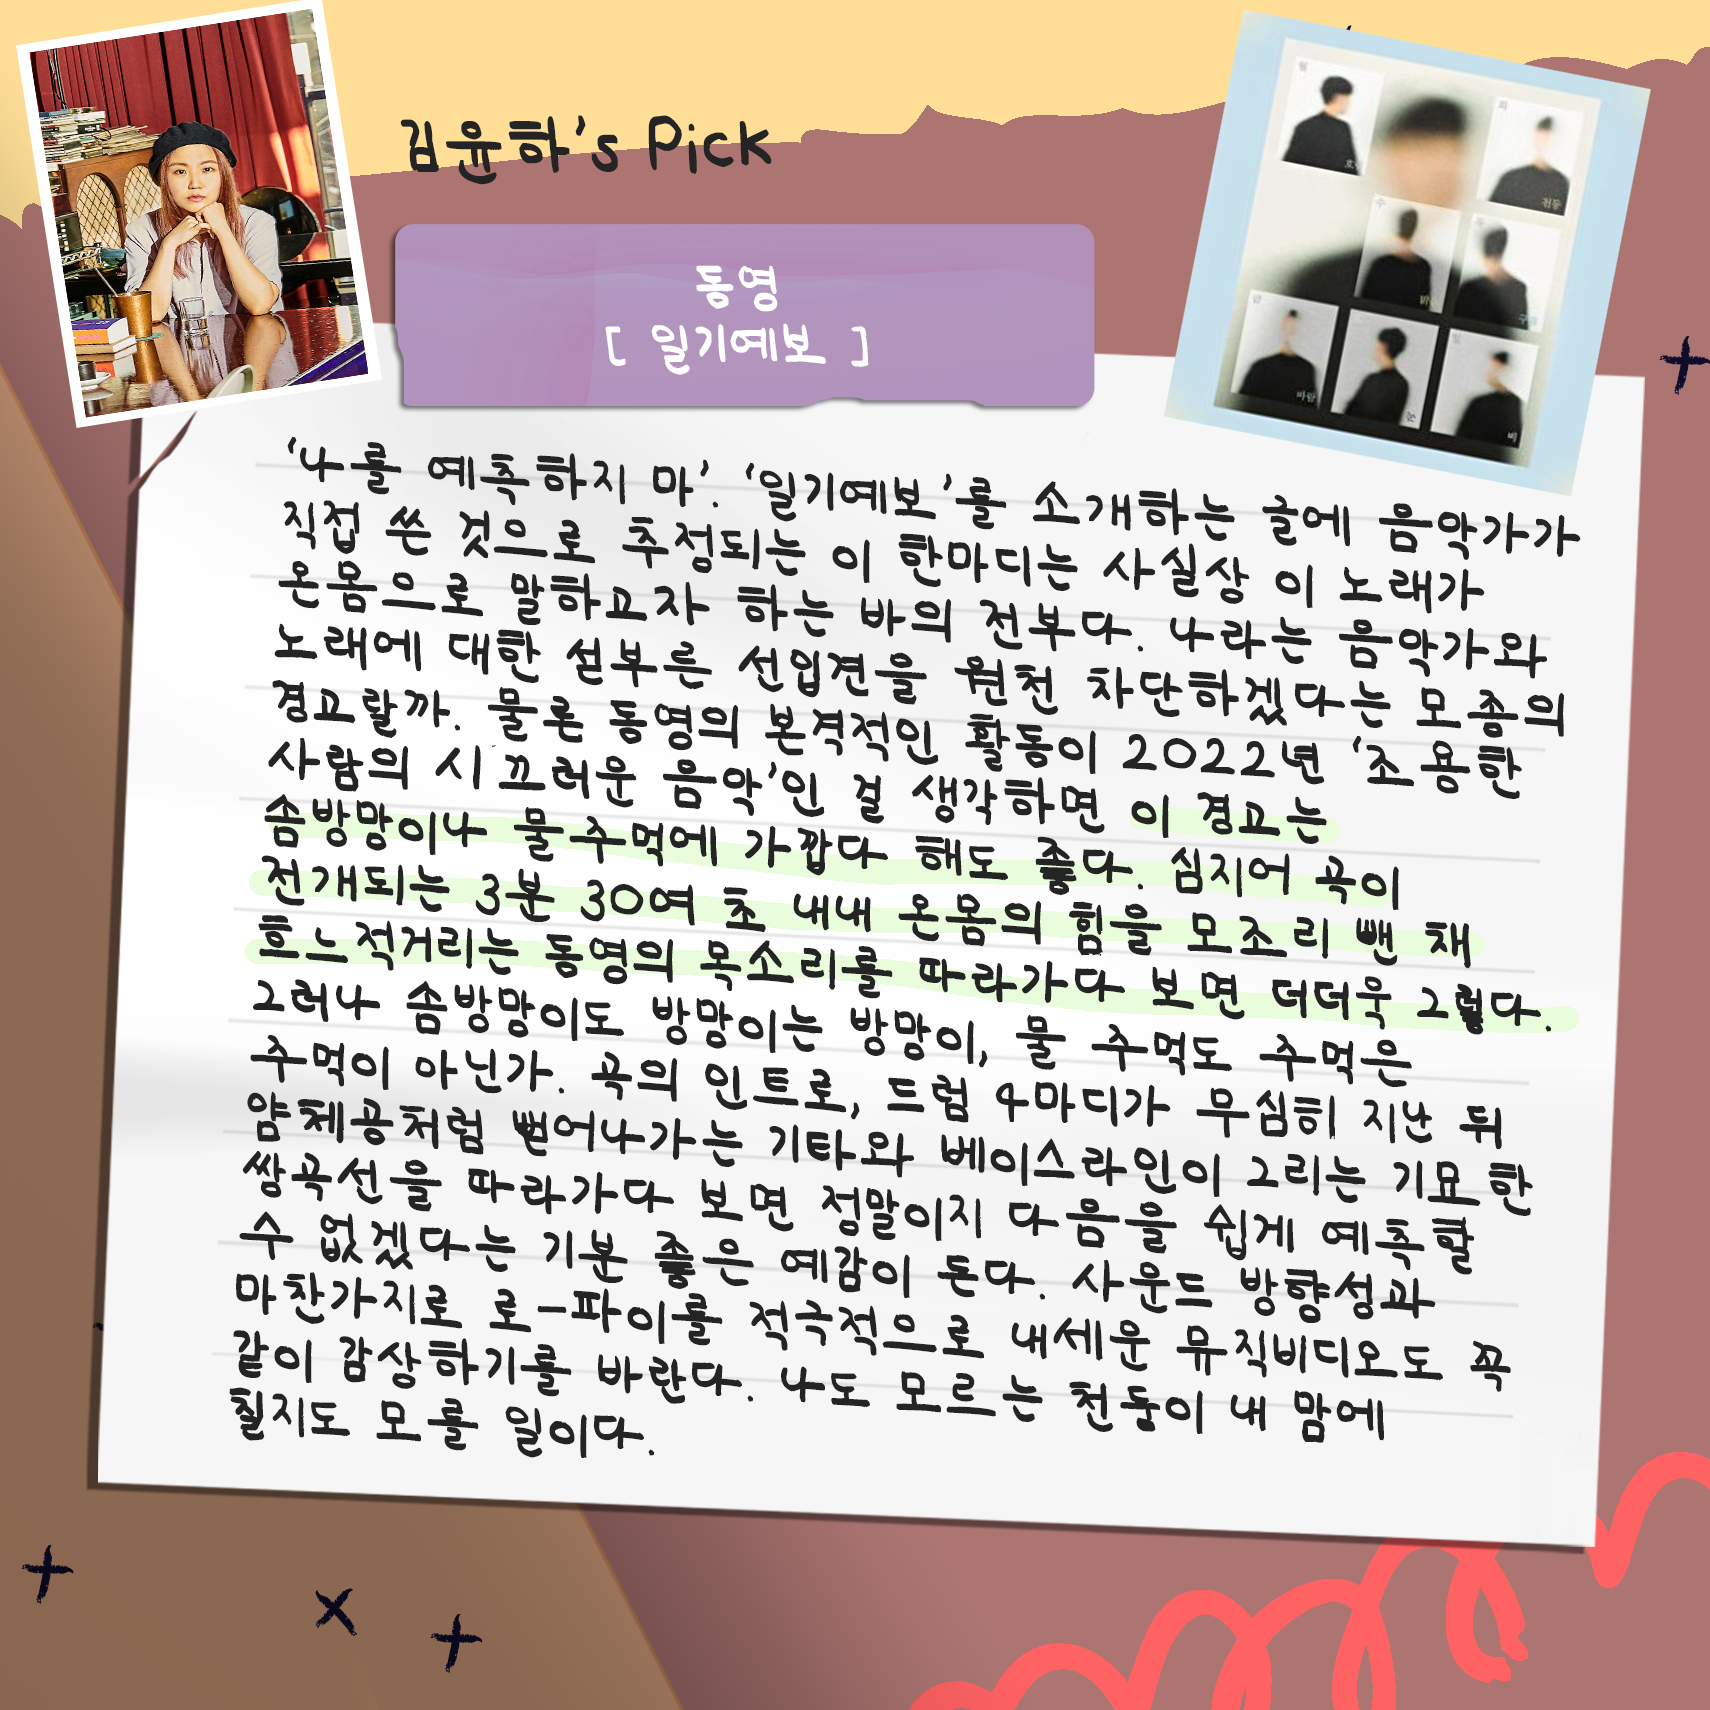 김윤하's Pick
동영
[ 일기예보 ]
'나를 예측하지 마'. '일기예보'를 소개하는 글에 음악가가
직접 쓴 것으로 추정되는 이 한마디는 사실상 이 노래가
온몸으로 말하고자 하는 바의 전부다. 나라는 음악가와
노래에 대한 섣부른 선입견을 원천 차단하겠다는 모종의
경고랄까. 물론 동영의 본격적인 활동이 2022년 '조용한
사람의 시끄러운 음악'인 걸 생각하면 이 경고는
솜방망이나 물주먹에 가깝다 해도 좋다. 심지어 곡이
전개되는 3분 30여 초 내내 온몸의 힘을 모조리 뺀 채
흐느적거리는 동영의 목소리를 따라가다 보면 더더욱 그렇다.
그러나 솜방망이도 방망이는 방망이, 물 주먹도 주먹은
주먹이 아닌가. 곡의 인트로, 드럼 4마디가 무심히 지난 뒤
얌체공처럼 뻗어나가는 기타와 베이스라인이 그리는 기묘한
쌍곡선을 따라가다 보면 정말이지 다음을 쉽게 예측할
수 없겠다는 기분 좋은 예감이 돈다. 사운드 방향성과
마찬가지로 로-파이를 적극적으로 내세운 뮤직비디오도 꼭
같이 감상하기를 바란다. 나도 모르는 천둥이 내 맘에
칠지도 모를 일이다.
천둥
구름
바람
비